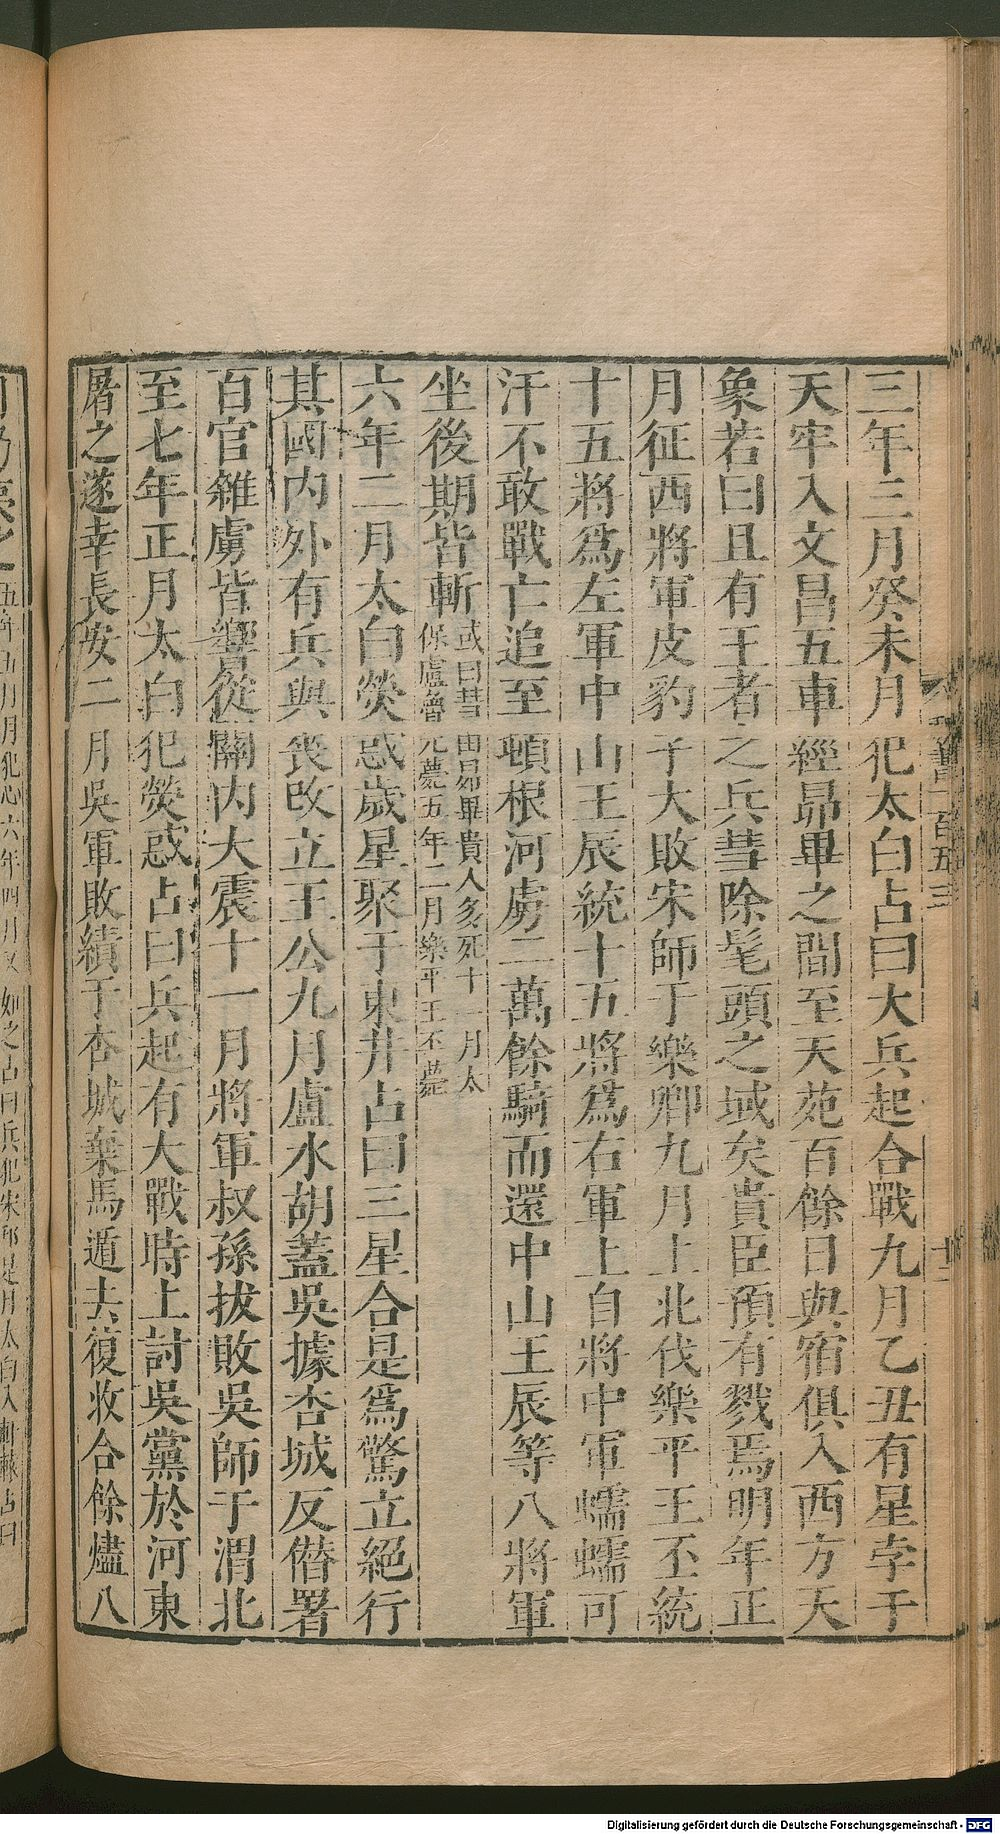 三年三月癸未月犯太白占曰大兵起合戰九月乙丑有星孛于
天牢入文昌五車經昴畢之間至天苑百餘日與宿俱入西方天
象若曰且有王者之兵彗除髦頭之域矣貴臣預有戮焉明年正
月征西將軍皮豹子大敗宋師于樂鄉九月上北伐樂平王丕統
十五將爲左軍中山王辰統十五將爲右軍上自將中軍蠕蠕可
汗不敢戰亡追至頓根河虜二萬餘騎而還中山王辰等八將軍
坐後期皆斬
或曰彗由昴畢貴人多死十一月太
保盧魯元薨五年二月樂平王丕薨
六年二月太白熒惑歲星聚于東井占曰三星合是爲驚立絕行
其國內外有兵與喪改立王公九月盧水胡蓋吳據杏城反僭署
百官雜虜皆響從關內大震十一月將軍叔孫拔敗吳師于渭北
至七年正月太白犯熒惑占曰兵起有大戰時上討吳黨於河東
屠之遂幸長安二月吳軍敗績于杏城棄馬遁去復收合餘燼八
五年五月月犯心六年四月又如之占曰兵犯宋邱是月太白入軒轅占曰